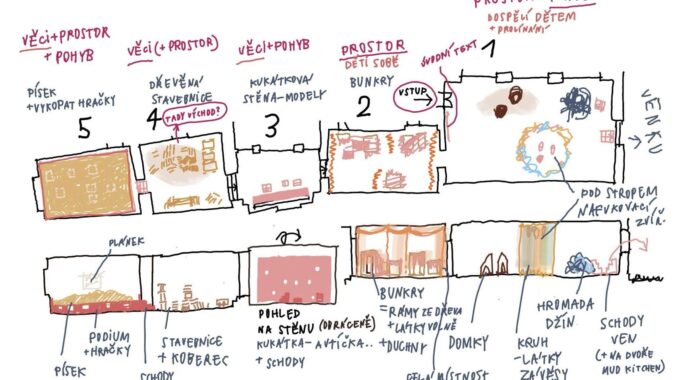 VĚCI + PROSTOR
+ POHYB
PÍSEK
+ VYKOPAT HRAČKY
5
VĚCI (+ PROSTOR)
DŘEVĚNÁ
STAVEBNICE
4
TADY VÝCHOD?
VĚCI + POHYB
KUKÁTKOVÁ
STĚNA - MODELY
3
PROSTOR
DĚTI SOBĚ
BUNKRY
2
ÚVODNÍ TEXT
VSTUP
DOSPĚLÍ DĚTEM
+ PROLÍNÁNÍ
1
VENKU
POD STROPEM
NAFUKOVACÍ
PLÁNEK
PÍSEK
PODIUM
+ HRAČKY
SCHODY
STAVEBNICE
+ KOBEREC
POHLED
NA STĚNU (OBRÁCENĚ)
KUKÁTKA - AUTÍČKA..
+ SCHODY
BUNKRY
= RÁMY ZE DŘEVA
+ LÁTKY VOLNĚ
+ DUCHNY
CELÁ MÍSTNOST
DOMKY
KRUH
- LÁTKY
ZÁVĚSY
HROMADA
DŽÍN
SCHODY
VEN
(+ NA DVOŘE
MUD KITCHEN)